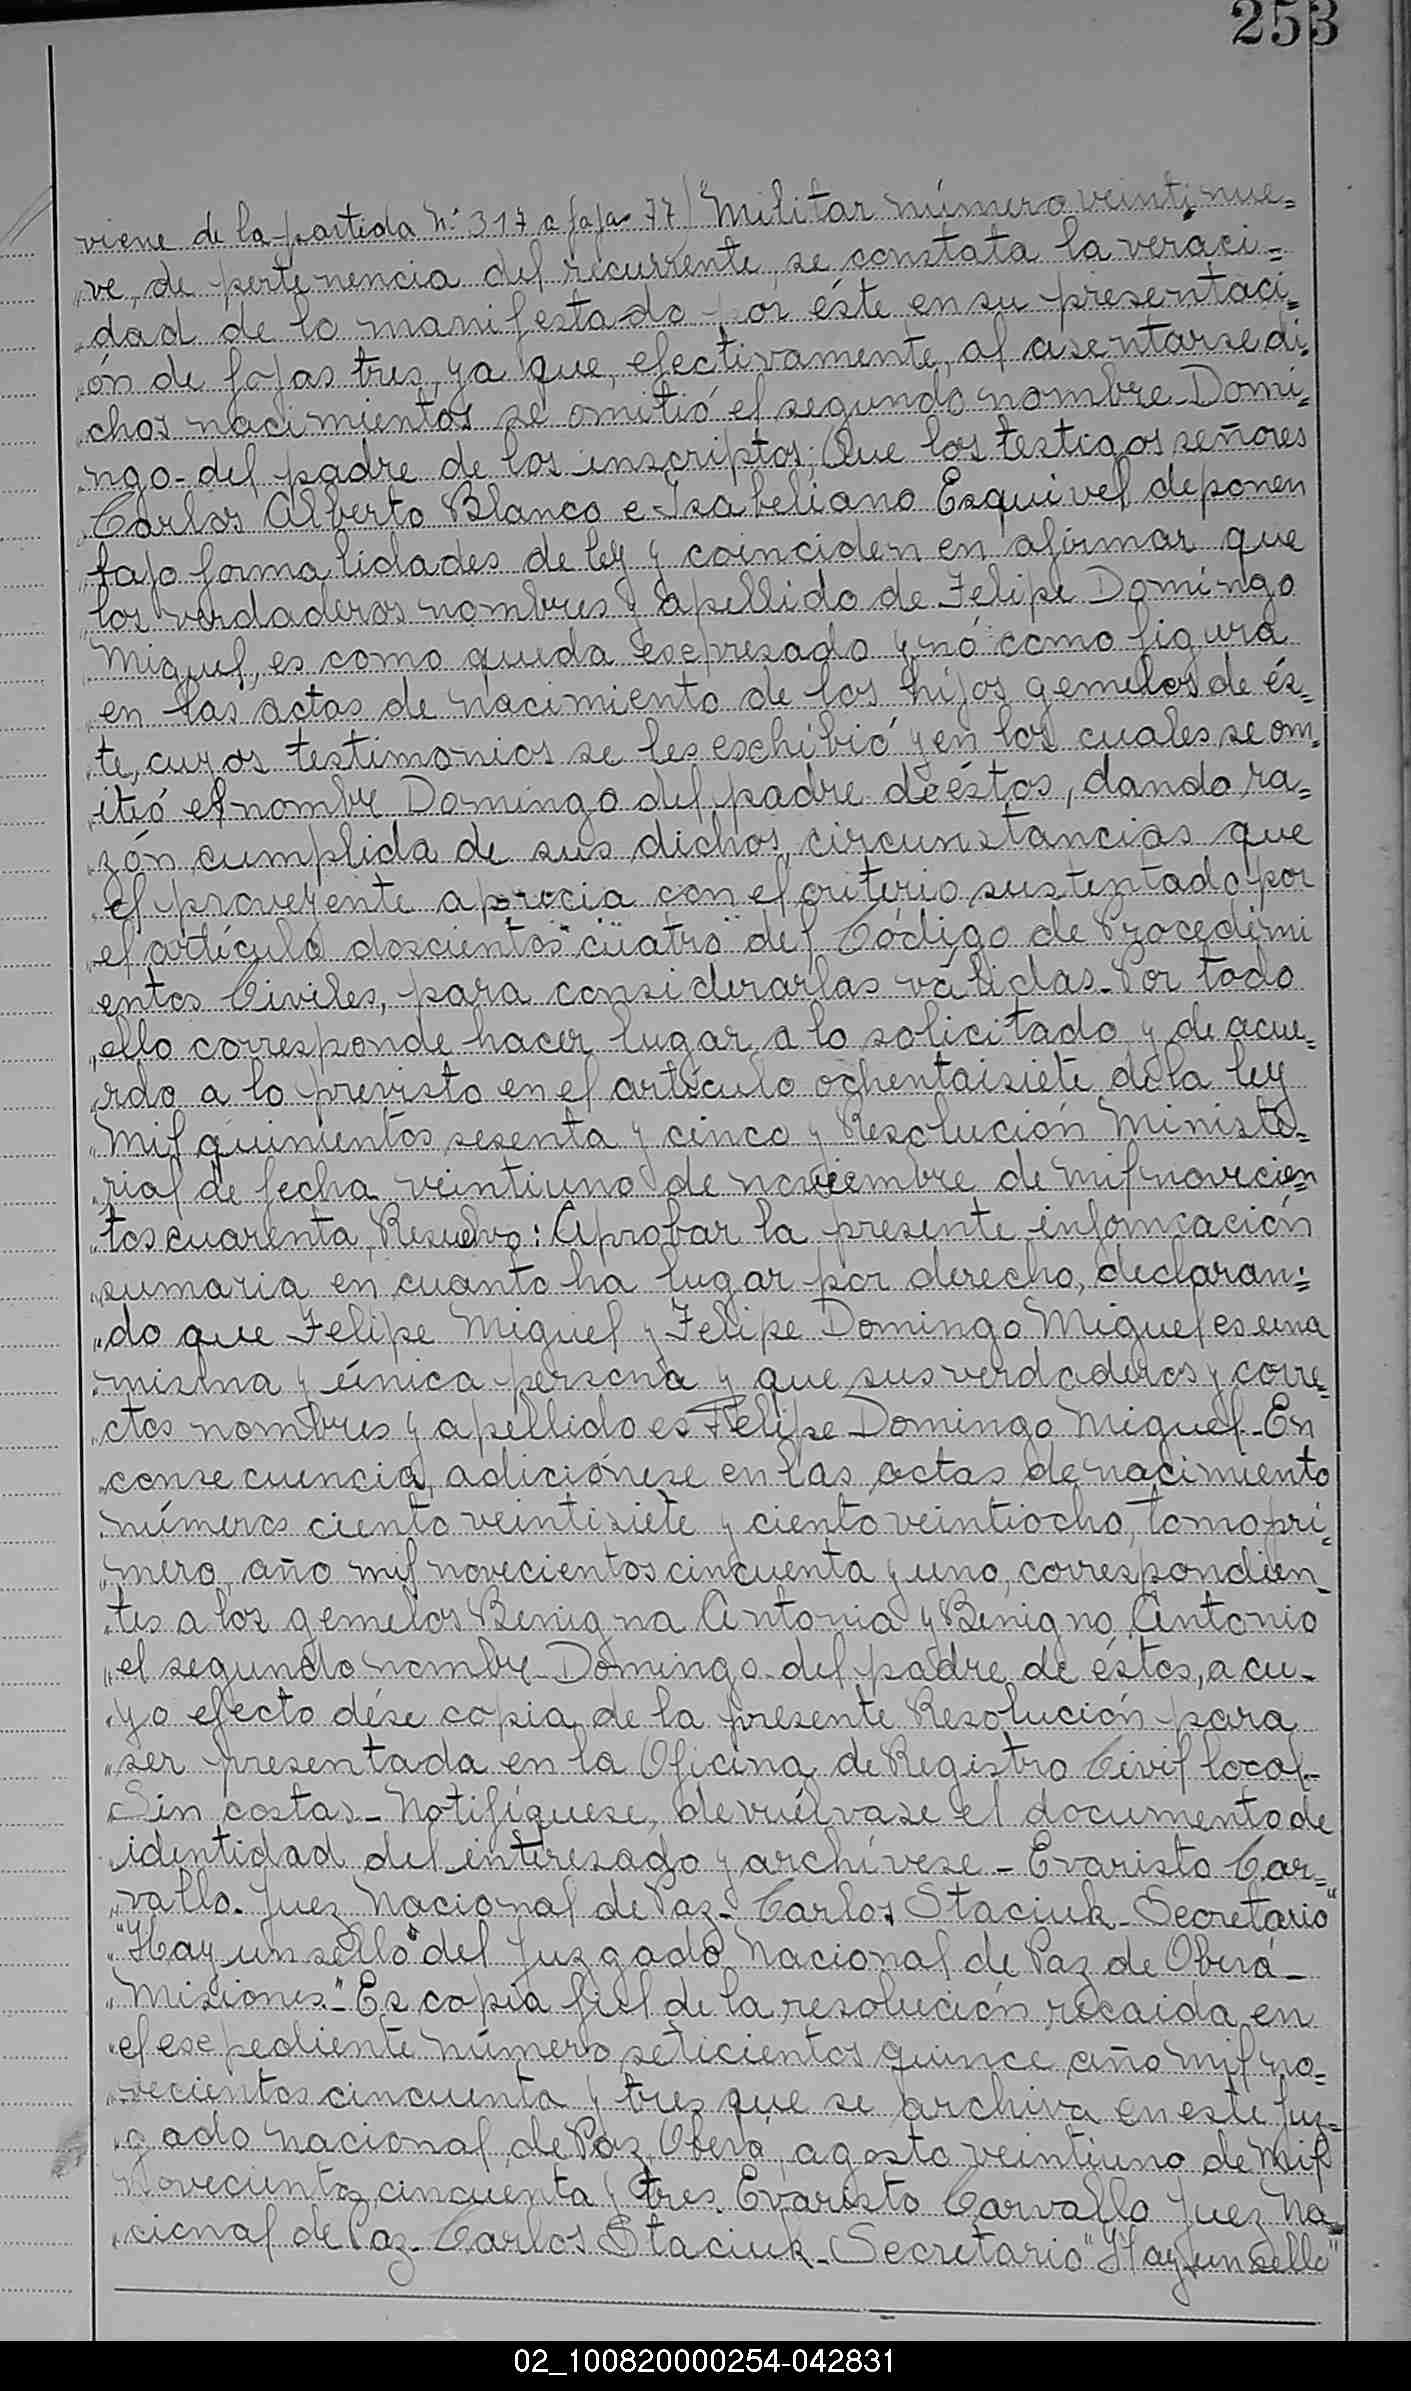 253
viene de la partida Nº 317 a foja 77) "Militar número veintinue=
"ve, de pertenencia del recurrente se constata la veraci=
"dad de lo manifestado por éste en su presentaci=
"ón de fojas tres, ya que, efectivamente, al asentarse di=
"chos nacimientos se omitió el segundo nombre Domi=
"ngo- del padre de los inscriptos; Que los testigos señores
"Carlos Alberto Blanco e Isabeliano Esquivel, deponen
"bajo formalidades de ley y coinciden en afirmar que
"los verdaderos nombres y apellido de Felipe Domingo
"Miguel, es como queda escpresado y nó como figura
"en las actas de nacimiento de los hijos gemelos de és=
"te, cuyos testimonios se les eschibió y en los cuales se om=
"itió el nombre Domingo del padre de éstos, dando ra=
"zón cumplida de sus dichos, circunstancias que
"el proveyente aprecia con el criterio sustentado por
"el artículo doscientos "cuatro" del Código de Procedimi
"entos Civiles, para considerarlas válidas. Por todo
"ello corresponde hacer lugar a lo solicitado y de acue=
"rdo a lo previsto en el artículo ochentaisiete de la ley
"mil quinientos sesenta y cinco y Resolución Ministe=
"rial de fecha veintiuno de noviembre de mil novecien=
"tos cuarenta, Resuelvo: Aprobar la presente información
"sumaria en cuanto ha lugar por derecho, declaran=
"do que Felipe Miguel y Felipe Domingo Miguel es una
"misma y única persona y que sus verdaderos y corre=
"ctos nombres y apellido es Felipe Domingo Miguel.- En
"consecuencia, adiciónese en las actas de nacimiento
"números ciento veintisiete y ciento veintiocho, tomo pri=
"mero, año mil novecientos cincuenta y uno, correspondien-
"tes a los gemelos Benigna Antonia y Benigno Antonio
"el segundo nombre Domingo- del padre de éstos, a cu-
"yo efecto dése copia de la presente Resolución para
"ser presentada en la Oficina de Registro Civil local.-
"Sin costas- Notifíquese, devuélvase el documento de
"identidad del interesado y archívese - Evaristo Car-
"vallo. Juez Nacional de Paz- Carlos Staciuk- Secretario"
"Hay un sello" del Juzgado Nacional de Paz de Oberá-
"Misiones"- Es copia fiel de la resolución recaida en
"el escpediente número seticientos quince año mil no-
"vecientos cincuenta y tres que se archiva en este Juz-
"gado Nacional de Paz Oberá, agosto veintiuno de mil
novecientos cincuenta y tres. Evaristo Carvallo Juez Na-
"cional de Paz- Carlos Staciuk- Secretario" "Hay un sello"
02_100820000254-042831